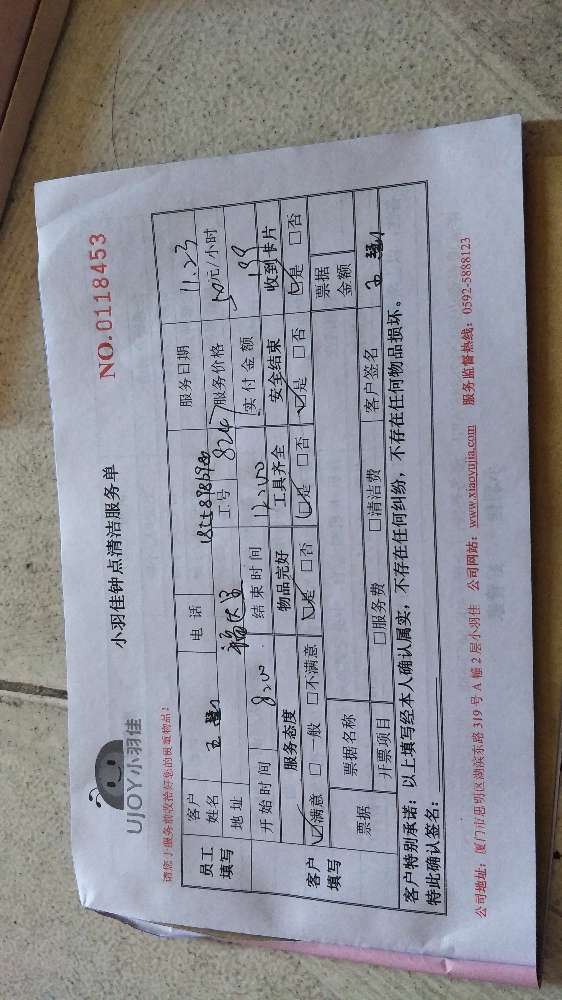 UJOY小羽佳
小羽佳钟点清洁服务单
NO.0118453
请您于服务前收拾好您的贵重物品！
员工填写 客户姓名 王 电话 服务日期 11.23
地址 工号 8247 服务价格 50元/小时
开始时间 8:00 结束时间 12:00 实付金额 199
客户填写 服务态度 物品完好 工具齐全 安全结束 收到卡片
☑满意 □一般 □不满意 ☑是 □否 ☑是 □否 ☑是 □否 ☑是 □否
票据 票据名称 票据金额
开票项目 □服务费 □清洁费 客户签名 王
客户特别承诺：以上填写经本人确认属实，不存在任何纠纷，不存在任何物品损坏。
特此确认签名：
公司地址：厦门市思明区湖滨东路 319 号 A 幢 2 层小羽佳 公司网站：www.xiaoyujia.com 服务监督热线：0592-5888123